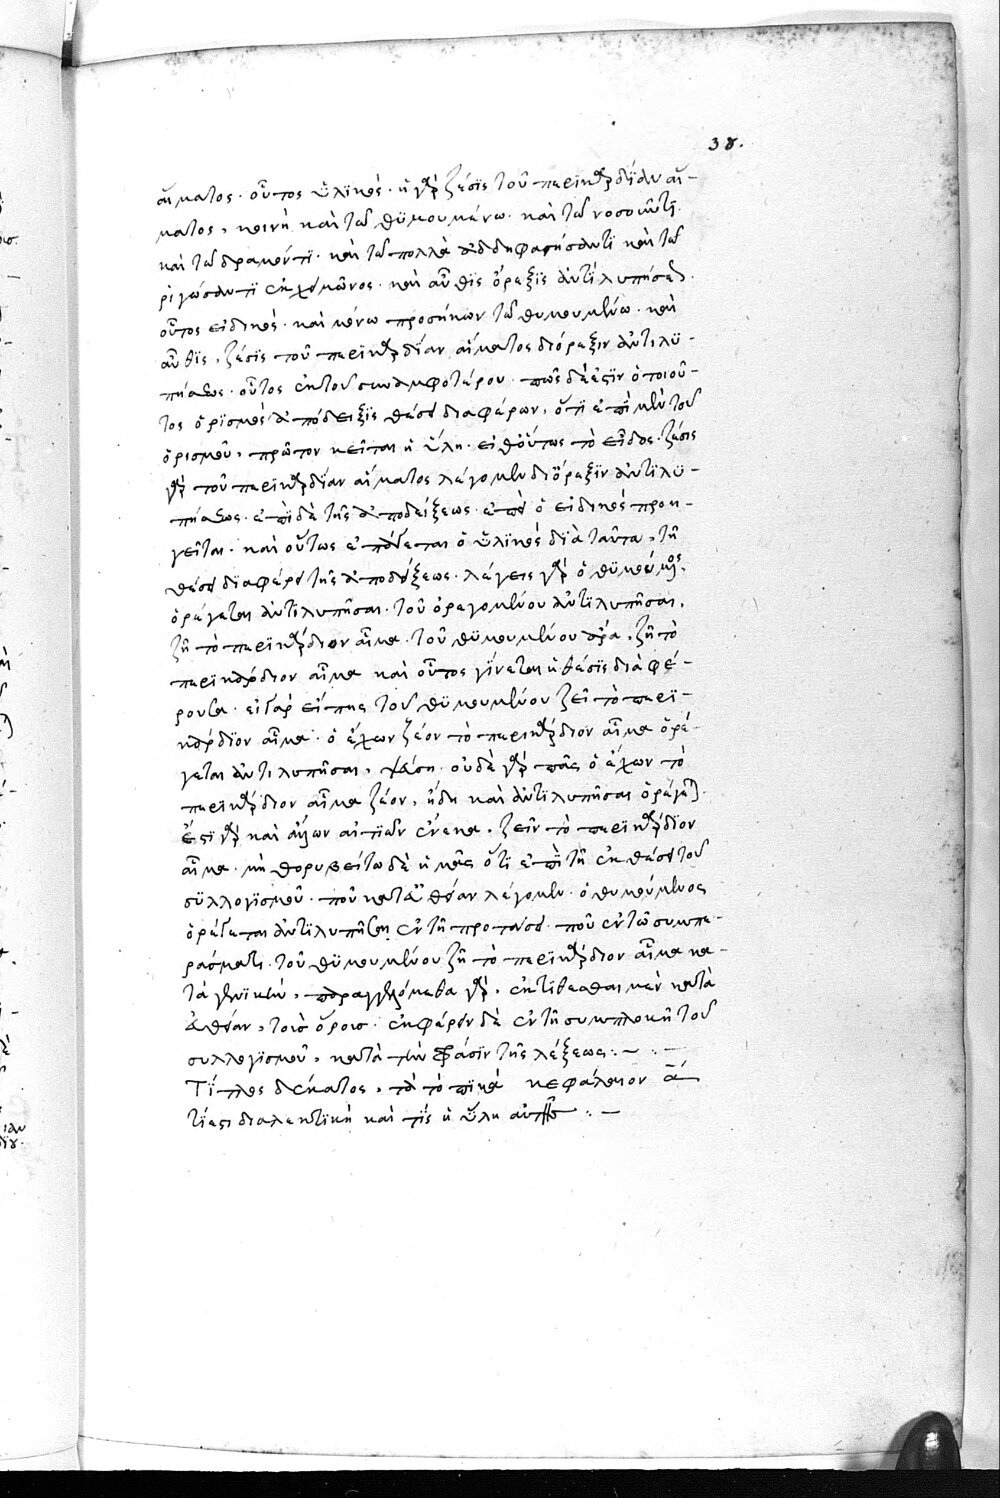 38.
αἵματος. οὗτος ὑλϊκός. ἡ γὰρ ζέσϊς τοῦ περϊκαρδΐου αἵ-
ματος, κοινὴ καὶ τῶ θϋμουμένω. καὶ τῶ νοσοῦντϊ.
καὶ τῶ δραμόντϊ. καὶ τῶ πολλὰ ἀδδηφαγήσαντϊ καὶ τῶ
ῥιγώσαντϊ ἐκ χειμῶνος. καὶ αὖθϊς ὄρεξϊς ἀντϊλυπήσεως.
οὗτος εἰδικός. καὶ μόνω προσήκων τῶ θυμουμένω. καὶ
αὖθϊς, ζέσϊς τοῦ περϊκαρδΐου αἵματος δι ὄρεξιν ἀντιλϋ-
πήσεως. οὗτος ἐκ τοῦ συναμφοτέρου. πῶς δέ ἐστϊν ὁ τοιοῦ-
τος ὁρϊσμὸς ἀπόδειξϊς θέσει διαφέρων, ὅτϊ ἐπὶ μὲν τοῦ
ὁρισμοῦ, πρῶτον κεῖται ἡ ὕλη. εἶθ οὕτως τὸ εἶδος. ζέσις
γὰρ τοῦ περϊκαρδΐου αἵματος λέγομεν δι ὄρεξϊν ἀντϊλϋ-
πήσεως. ἐπὶ δὲ τῆς ἀποδείξεως. ἐπεὶ ὁ εἰδικός προη-
γεῖται. καὶ οὕτως ἐπάγεται ὁ ὑλϊκός διὰ ταῦτα, τῆ
θέσει διαφέρει τῆς ἀποδείξεως. λέγεις γὰρ ὁ θϋμούμενος,
ὀρέγεται ἀντϊλυπῆσαι. τοῦ ὀρεγομένου ἀντϊλυπῆσαι,
ζῆ τὸ περϊκάρδιον αἷμα. τοῦ θϋμουμένου ἄρα, ζῆ τὸ
περϊκάρδιον αἷμα καὶ οὗτος γίνεται ἡ θέσϊς διαφέ-
ρουσα. εἰ γὰρ εἴπης τοῦ θϋμουμένου ζεῖ τὸ περϊ-
κάρδϊον αἷμα. ὁ ἔχων ζέον τὸ περικάρδιον αἷμα ὀρέ-
γεται ἀντιλυπῆσαι, ψεύση. οὐδὲ γὰρ πᾶς ὁ ἔχων τὸ
περϊκάρδιον αἷμα ζέον, ἤδη καὶ ἀντϊλυπῆσαι ὀρέγεται.
ἔστϊ γὰρ καὶ ἄλλων αἰτϊῶν ἕνεκα, ζεῖν τὸ περϊκάρδϊον
αἷμα. μὴ θορυβείτω δὲ ἡμᾶς ὅτϊ ἐπὶ τῆ ἐκθέσει τοῦ
σϋλλογϊσμοῦ. ποῦ κατ εὐθεῖαν λέγομεν. ὁ θυμούμενος
ὀρέγεται ἀντϊλυπῆσαι ἐν τῆ προτάσει. ποῦ ἐν τῶ συμπε-
ράσματι. τοῦ θϋμουμένου ζῆ τὸ περϊκάρδιον αἷμα κα-
τὰ γενϊκήν, παραγγελλόμεθα γὰρ, ἐκτίθεσθαι μὲν κατὰ
εὐθεῖαν, τοὺσ ὅρουσ. ἐκφέρειν δὲ ἐν τῆ συμπλοκῆ τοῦ
συλλογϊσμοῦ, κατὰ τὴν φάσϊν τῆς λέξεως:~
Τί τέλος δέκατος, τὰ τοπϊκὰ κεφάλαιον ᾱ
τί ἐστι διαλεκτϊκὴ καὶ τίς ἡ ὕλη αὐτῆς :~